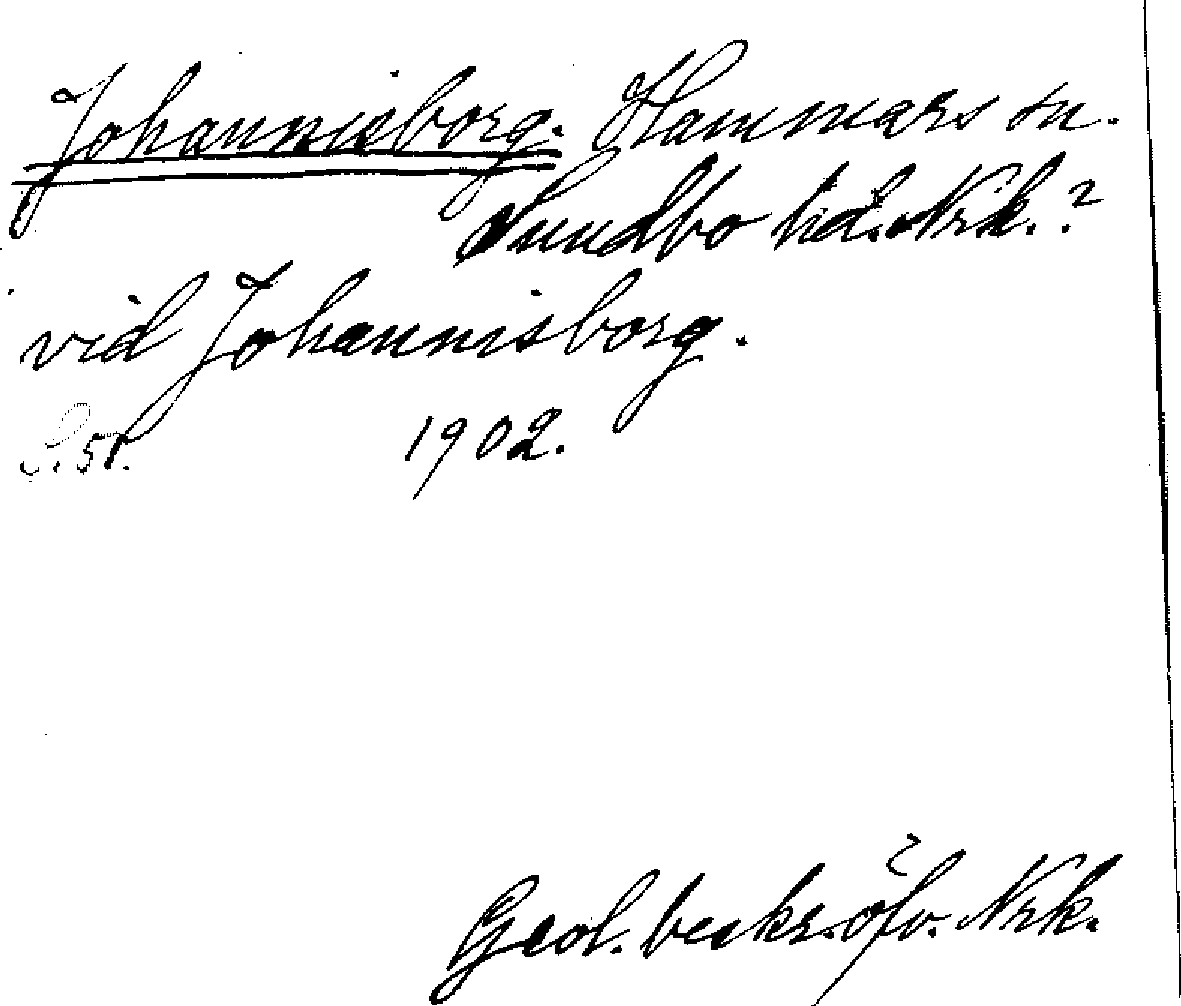 Johannisborg. Hammars sn.
Sundbo hd. Nrk.?
vid Johannisborg.
S. 58. 1902.
Geol. beskr. öfv. Nrk.